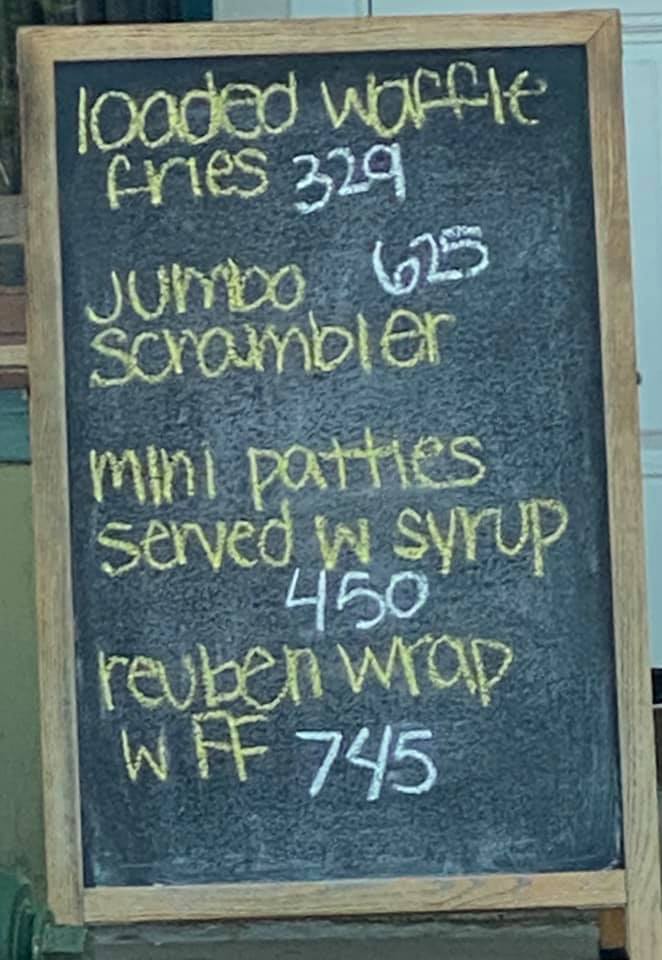 loaded waffle
fries 329
Jumbo 625
scrambler
mini patties
served w syrup
450
reuben wrap
w FF 745